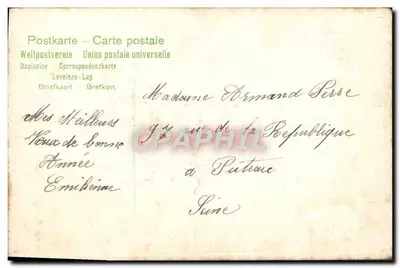 Postkarte – Carte postale
Weltpostverein Union postale universelle
Dopisnice – Correspondenzkarte
Levelezo-Lap
Briefkaart Brefkort
Mes Meilleurs
Vœux de bonne
Année
Emilienne
Madame Armand Perre
97 de la République
à Puteaux
Seine
APHIL